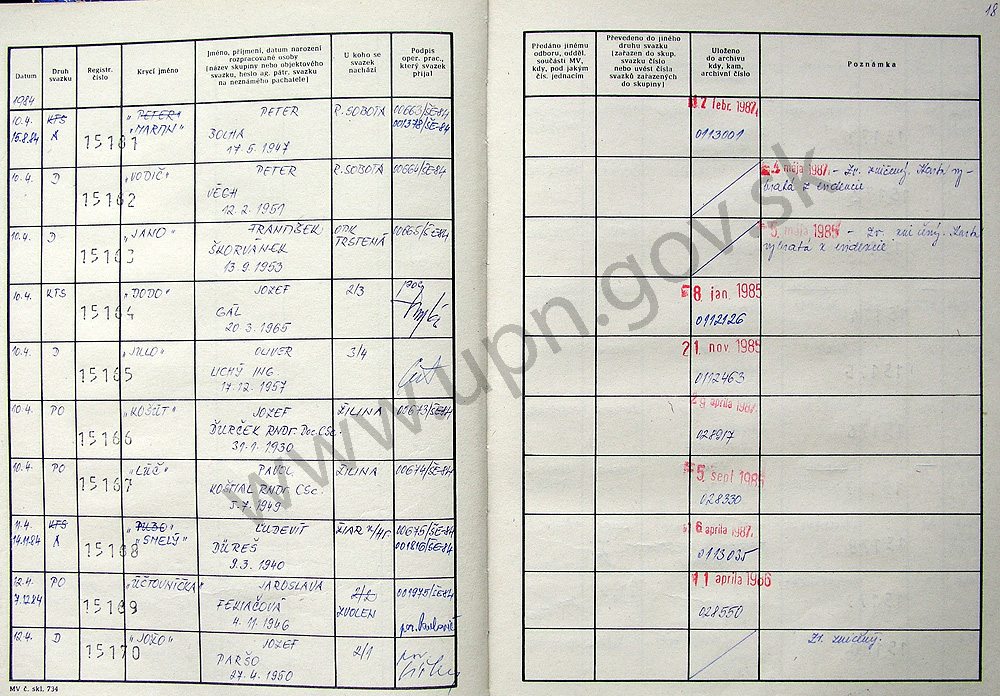 18
Datum
Druh svazku
Registr. číslo
Krycí jméno
Jméno, příjmení, datum narození
rozpracované osoby
(název skupiny nebo objektového
svazku, heslo ag. pátr. svazku
na neznámého pachatele)
U koho se
svazek
nachází
Podpis
oper. prac.,
který svazek
přijal
Předáno jinému
odboru, odděl.
součásti MV,
kdy, pod jakým
čís. jednacím
Převedeno do jiného
druhu svazku
(zařazen do skup.
svazku číslo
nebo uvést čísla
svazků zařazených
do skupiny)
Uloženo
do archivu
kdy, kam,
archivní číslo
Poznámka
1984
10.4. KTS 15161 "PETER" PETER R. SOBOTA 00663/ŠE-84
15.8.84 A "MARTIN" 001378/ŠE-84
17.5.1947
febr. 1987
0113001
10.4. D 15162 "VODIČ" PETER R. SOBOTA 00664/ŠE-84
VÉGH
12.2.1951
mája 1987 - Zr. zničený. Karta vy-
bratá z evidencie
10.4. D 15163 "JANO" FRANTIŠEK TRSTENÁ 00665/ŠE-84
ŠKORVÁNEK
13.9.1953
5. mája 1985 - Zr. zničený. Karta
vybratá z evidencie
10.4. KTS 15164 "DODO" JOZEF 2/3
GÁL
20.3.1965
8. jan. 1985
0112126
10.4. D 15165 "JULO" OLIVER 3/4
LICHÝ ING.
17.12.1957
21. nov. 1985
0112463
10.4. PO 15166 "KOŠÚT" JOZEF ŽILINA 00673/ŠE-84
ĎURČEK RNDr. Doc. CSc.
31.1.1930
apríla 1987
028917
10.4. PO 15167 "LÚČ" PAVOL ŽILINA 00674/ŠE-84
KOŠTIAL RNDr CSc.
5.7.1949
5. sept 1985
028330
11.4. KTS 15168 ĽUDEVÍT ŽIAR n/Hr. 00675/ŠE-84
14.11.84 A "SMELÝ" 001816/ŠE-84
DÜREŠ
9.3.1940
6 apríla 1987
0113035
12.4. PO 15169 "ÚČTOVNÍČKA" JAROSLAVA 2/2 001975/ŠE-84
7.12.84 FEKIAČOVÁ ZVOLEN
4.11.1946
11 apríla 1986
028550
12.4. D 15170 "JOŽO" JOZEF 2/1
PARŠO
27.4.1950
Zr. zničený.
MV č. skl. 734
www.upn.gov.sk